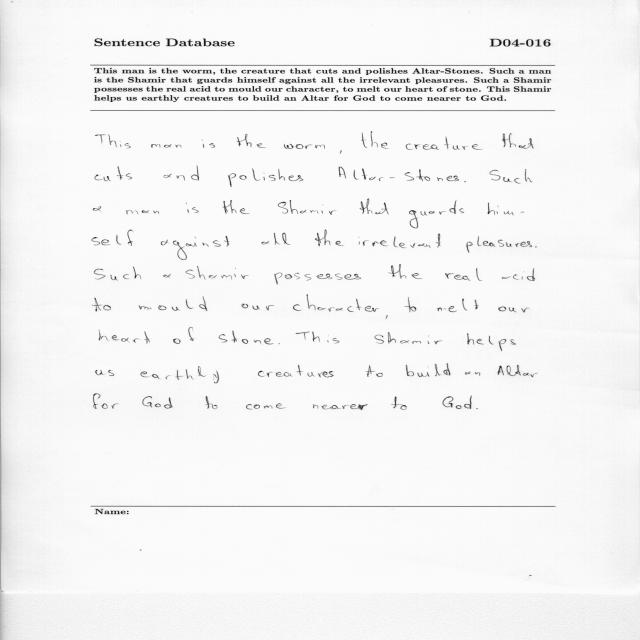 Sentence Database D04-016
This man is the worm, the creature that cuts and polishes Altar-Stones. Such a man
is the Shamir that guards himself against all the irrelevant pleasures. Such a Shamir
possesses the real acid to mould our character, to melt our heart of stone. This Shamir
helps us earthly creatures to build an Altar for God to come nearer to God.
This man is the worm, the creature that
cuts and polishes Altar-Stones. Such
a man is the Shamir that guards him-
self against all the irrelevant pleasures.
Such a Shamir possesses the real acid
to mould our character, to melt our
heart of stone. This Shamir helps
us earthly creatures to build an Altar
for God to come nearer to God.
Name: